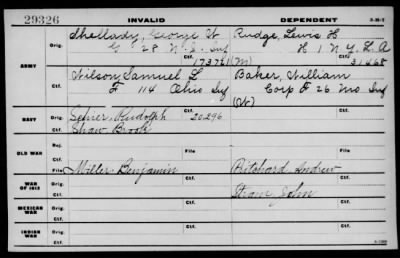 29326 INVALID DEPENDENT 3-M-7
Shellady, George W Rudge, Lewis H
ARMY Orig. G 28 N.J. Inf H 1 N.Y.L.A
Ctf. 173721 (M) Ctf. 31468
Wilson, Samuel L Baker, William
Ctf. F 114 Ohio Inf Corp F 26 Mo Inf
(W)
NAVY Orig. Seiner, Rudolph Ctf. 20,296
Ctf. Shaw Brook
OLD WAR Rej.
Ctf. File File
WAR OF 1812 Orig. Miller Benjamin Pritchard Andrew
Ctf. John
MEXICAN WAR Orig.
Ctf.
INDIAN WAR Orig.
Ctf.